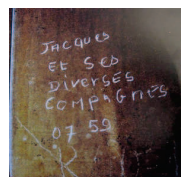 JACQUES
ET SES
DIVERSES
COMPAGNIES
07.59